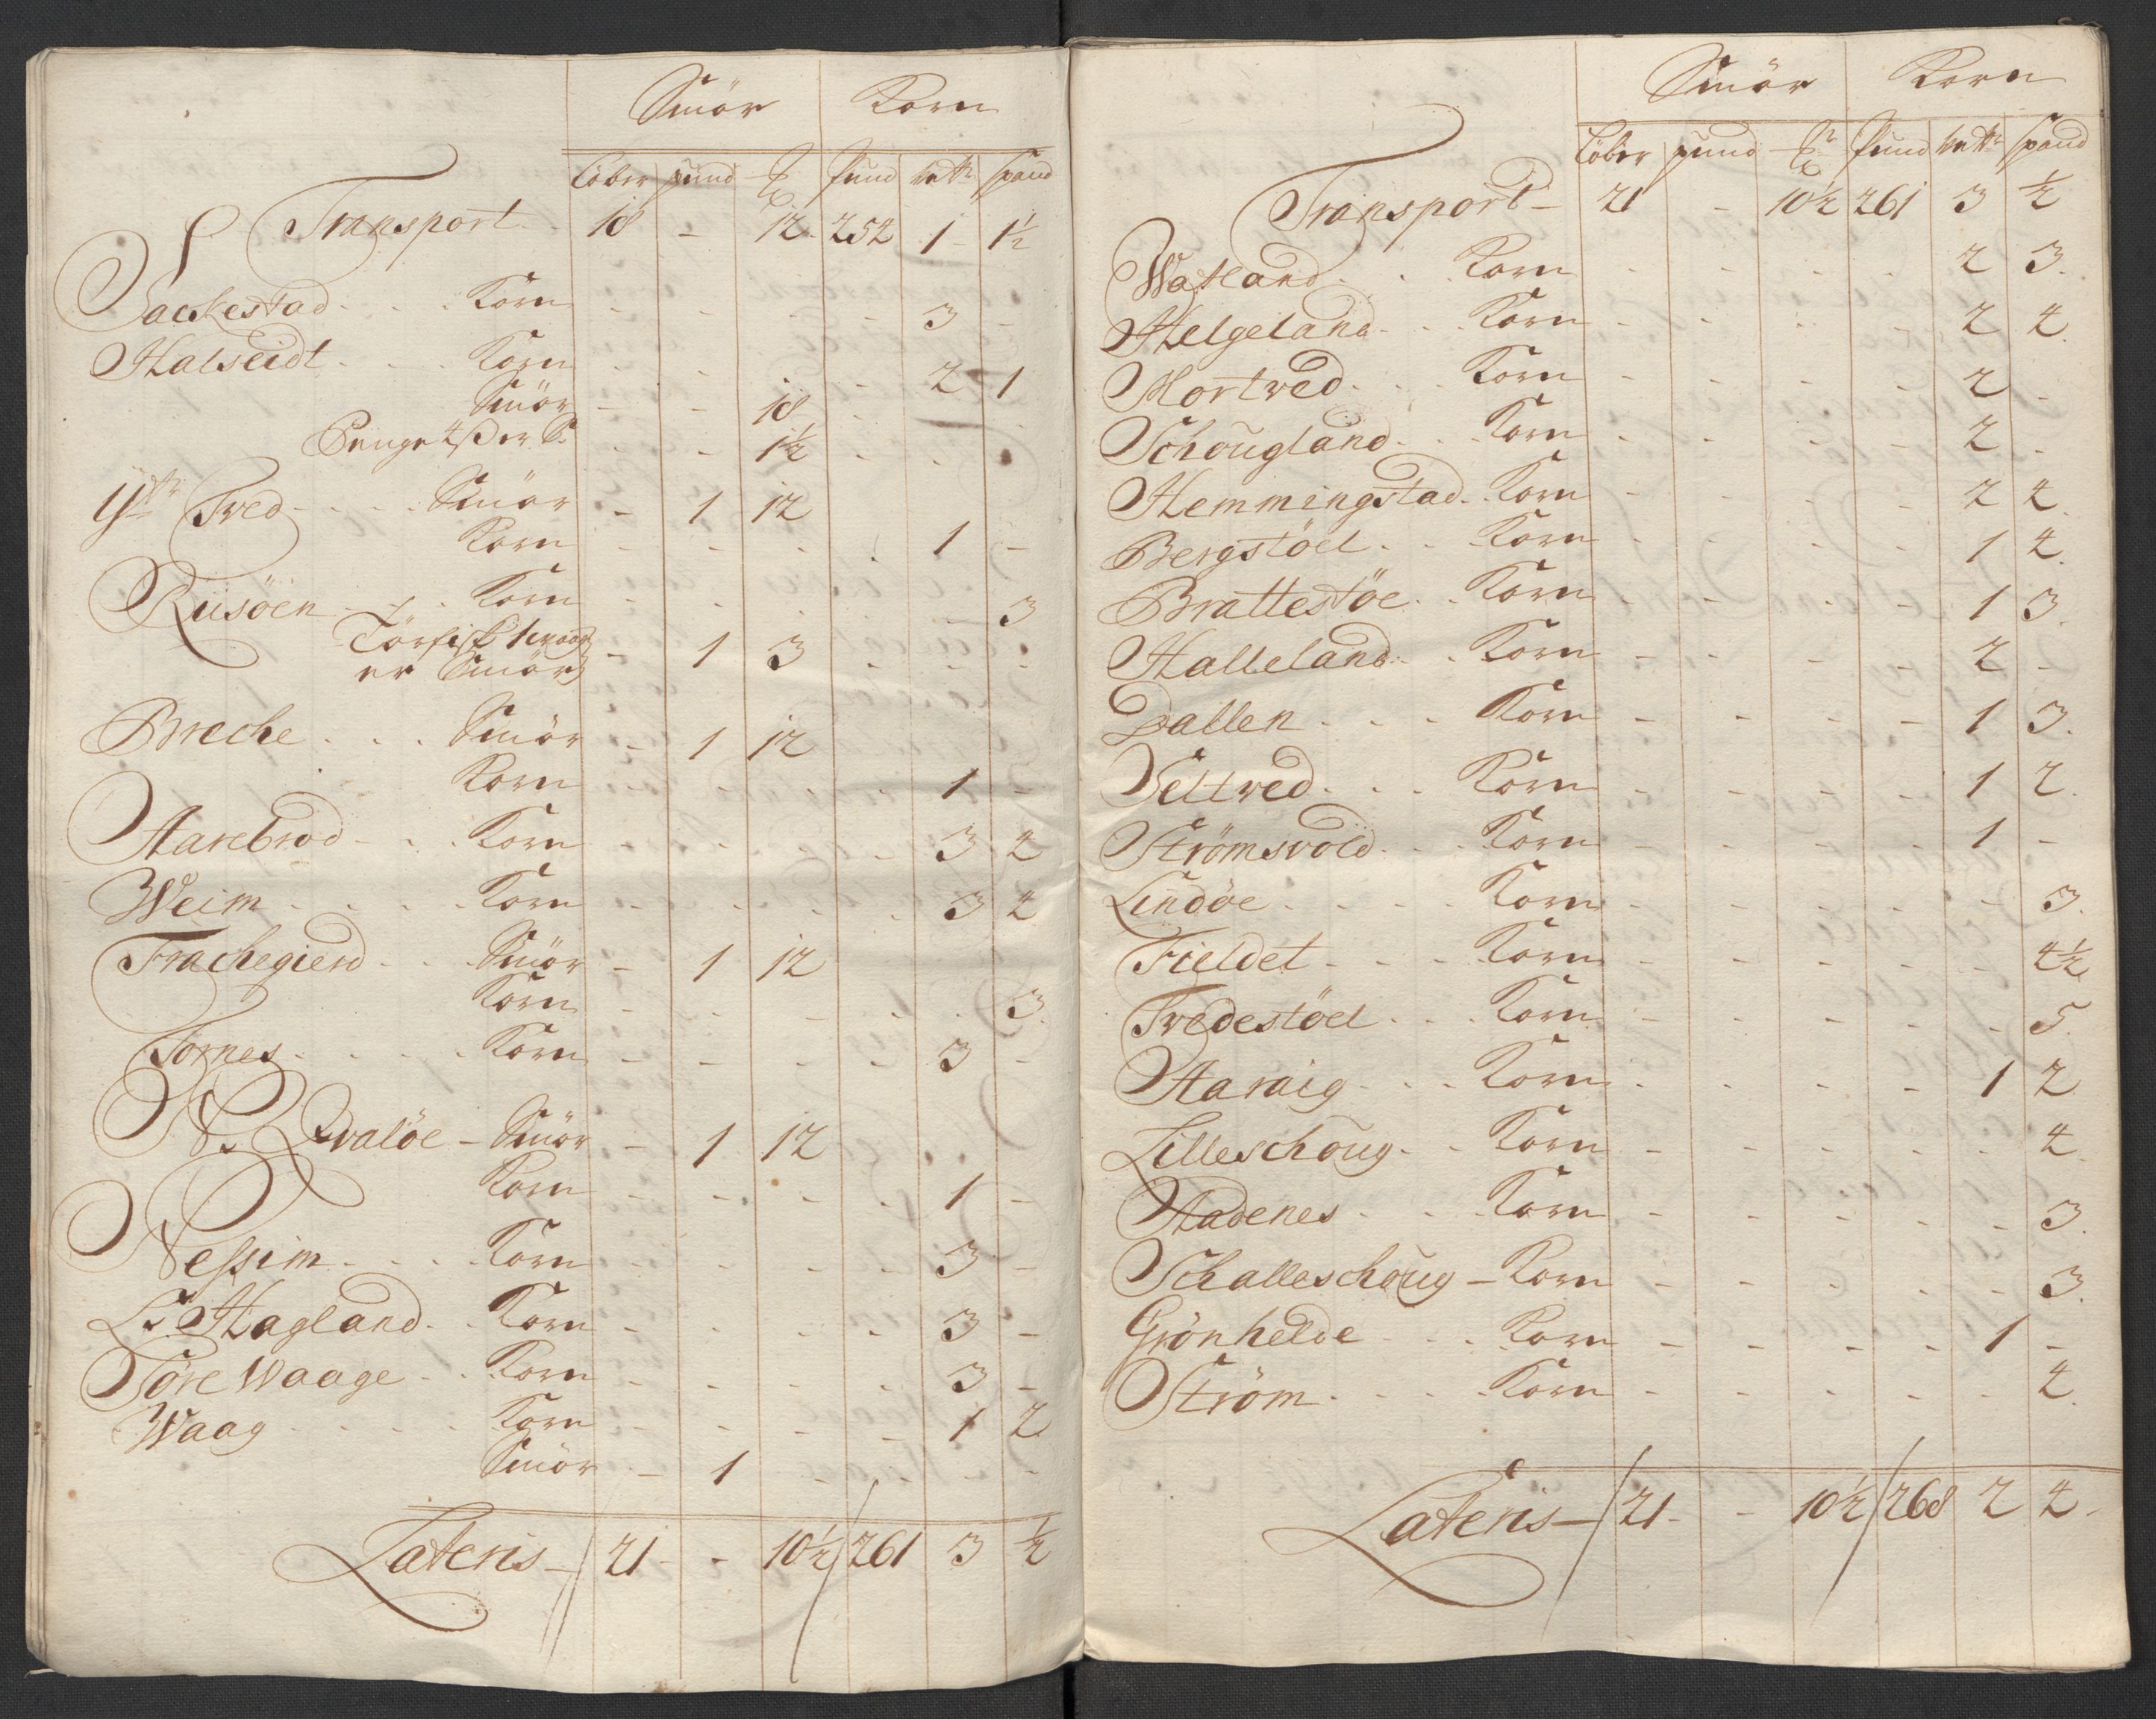 Smör Korn
Löber pund ℔ Pund wett Spand
Transport 18 - 12 252 1 1½
Sackestad Korn - - - - 3 -
Halseidt Korn - - - - 2 1
Smör - - 18
Penge 4 ß er S. - - 1½
Yttr Tved Smör - 1 12
Korn - - - - 1 -
Riisöen Korn - - - - - 3
Törfisk 1 waag
er Smör - 1 3 - - -
Breche Smör - 1 12
Korn - - - - 1 -
Aarebrod Korn - - - - 3 4
Weim Korn - - - - 3 4
Frachegierd Smör - 1 12
Korn - - - - - 3
Tornes Korn - - - - 3 -
N. Qvalöe - Smör - 1 12
Korn - - - - 1 -
Nessim Korn - - - - 3 -
L. Hagland Korn - - - - 3 -
Söre Waage Korn - - - - 3 -
Waag Korn - - - - 1 2
Smör - 1 - - - -
Lateris - 21 - 10½ 261 3 ½
Smör Korn
Löber pund ℔ Pund wett Spand
Transport - 21 - 10½ 261 3 ½
Watland Korn - - - - 2 3.
Helgeland Korn - - - - 2 4.
Mortved Korn - - - - 2 -
Schougland Korn - - - - 2 -
Hemmingstad Korn - - - - 2 4.
Bergstöel Korn - - - - 1 4.
Brattestöe Korn - - - - 1 3.
Halleland Korn - - - - 2 -
Dallen Korn - - - - 1 3.
Seltved Korn - - - - 1 2.
Strömsvold Korn - - - - 1 -
Lindöe Korn - - - - - 3.
Fieldet Korn - - - - - 4½
Tvedestöel Korn - - - - - 5.
Haraig Korn - - - - 1 2
Lilleschoug Korn - - - - - 4
Hadenes Korn - - - - - 3.
Schalleschoug - Korn - - - - - 3.
Grönhelde Korn - - - - 1 -
Ström Korn - - - - - 4.
Lateris - 21 - - 10½ 268 2 4.